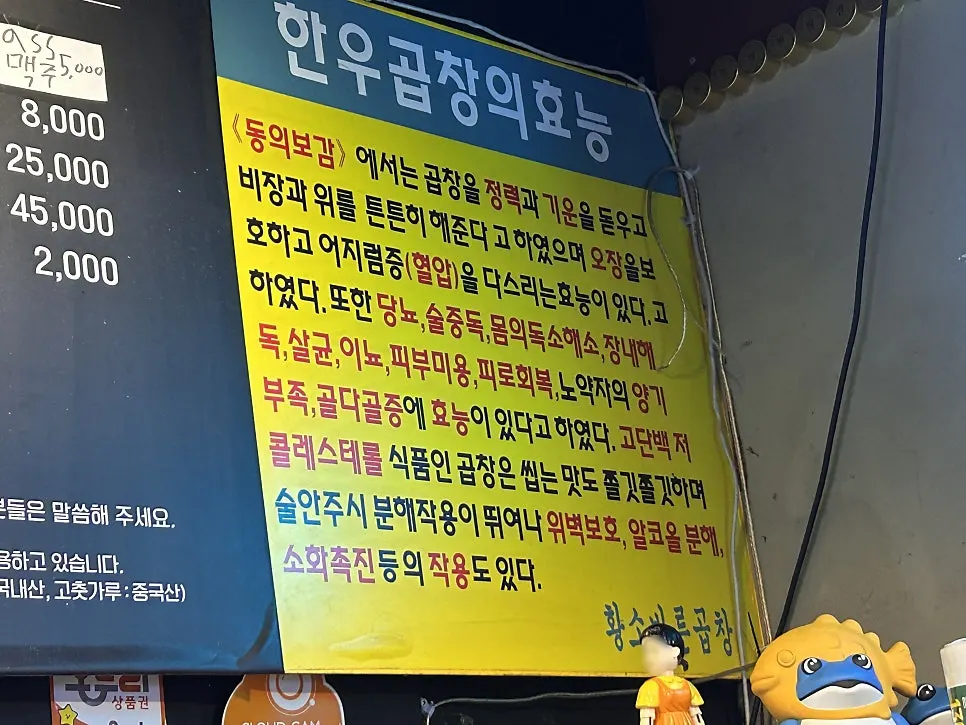 맥주 5,000
8,000
25,000
45,000
2,000
분들은 말씀해 주세요.
용하고 있습니다.
국내산, 고춧가루 : 중국산)
한우곱창의효능
《동의보감》에서는 곱창을 정력과 기운을 돋우고
비장과 위를 튼튼히 해준다고 하였으며 오장을보
호하고 어지럼증(혈압)을 다스리는효능이 있다.고
하였다. 또한 당뇨,술중독,몸의독소해소,장내해
독,살균,이뇨,피부미용,피로회복,노약자의 양기
부족,골다골증에 효능이 있다고 하였다. 고단백 저
콜레스테롤 식품인 곱창은 씹는 맛도 쫄깃쫄깃하며
술안주시 분해작용이 뛰여나 위벽보호, 알코올 분해,
소화촉진 등의 작용도 있다.
곱창
상품권